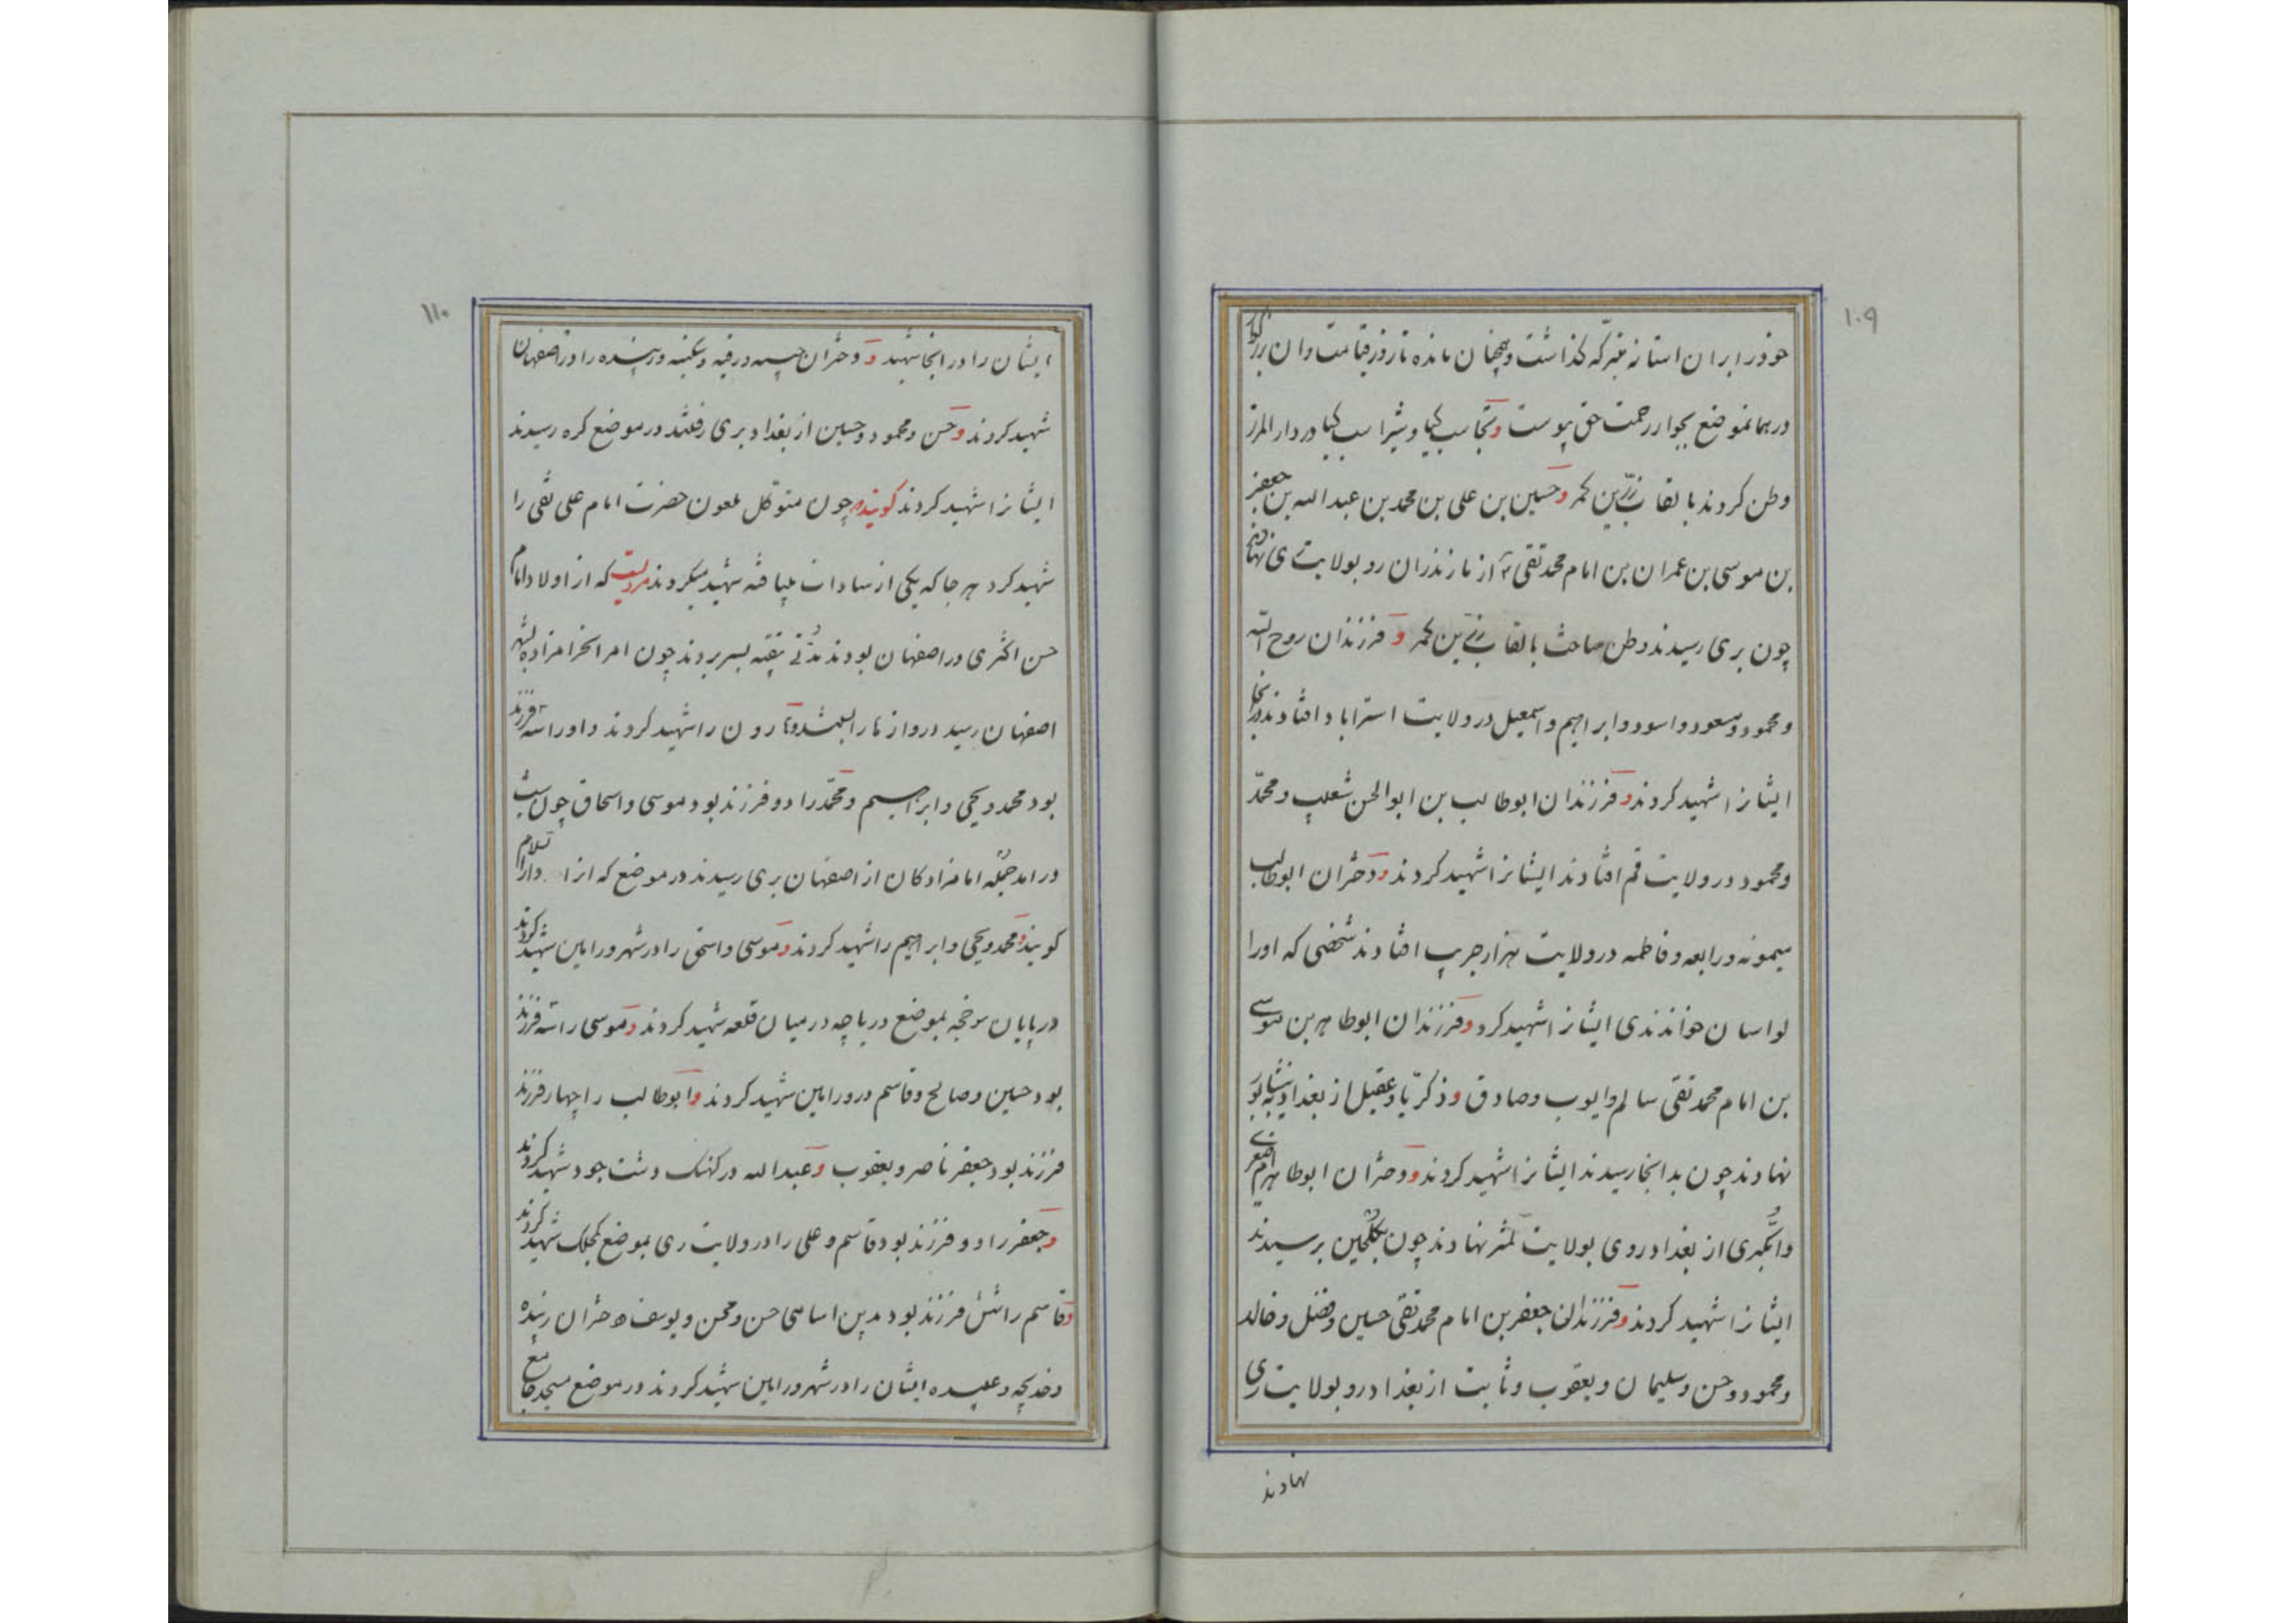 ۱۰۹
خود در ایران استانه متبرکه گذاشت و پنهان مانده تا روز قیامت و آن بزرگوار
در همانموضع بجوار رحمت حق پیوست و گیا و شیراسب گیا در دار المرز
وطن کردند بالقاب زرین کمر و حسین بن علی بن محمد بن عبد الله بن جعفر
بن موسی بن عمران بن امام محمد تقی از مازندران رو بولایت ری نهاد
چون بری رسیدند وطن ساخت بالقاب زرین کمر و فرزندان روح الله
و محمود و مسعود و اسود و ابراهیم و اسمعیل در ولایت استراباد افتادند در انجا
ایشانرا شهید کردند و فرزندان ابوطالب بن ابو الحسن شعیب و محمد
و محمود در ولایت قم افتادند ایشانرا شهید کردند و دختران ابوطالب
میمونه و رابعه و فاطمه در ولایت هزار جریب افتادند شخصی که او را
لواسان خواندندی ایشانرا شهید کرد و فرزندان ابوطاهر بن موسی
بن امام محمد تقی سالم و ایوب و صادق و ذکریا و عقیل از بغداد
نهادند چون بدانجا رسیدند ایشانرا شهید کردند و دختران ابوطاهر
و کبری از بغداد روی بولایت نهادند چون رسیدند
ایشانرا شهید کردند و فرزندان جعفر بن امام محمد تقی حسین و فضل و خالد
و محمود و حسن و سلیمان و یعقوب و ثابت از بغداد رو بولایت ری
نهادند
۱۱۰
ایشان را در انجا شهید و دختران و رقیه و سکینه و را در اصفهان
شهید کردند و حسن و محمود و حسین از بغداد بری رفتند در موضع کره رسیدند
ایشانرا شهید کردند گویند چون متوکل ملعون حضرت امام علی نقی را
شهید کرد هر جا که یکی از سادات میافت شهید میکردند مرویست که از اولاد امام
حسن اکثری در اصفهان بودند مدتی بتقیه بسر بردند چون امر انحرامزاده بشهر
اصفهان رسید دروازها را ببستند و هارون را شهید کردند و او را سه فرزند
بود محمد و یحیی و ابراهیم و محمد را دو فرزند بود موسی و اسحاق چون شب
درامد جمله امامزادگان از اصفهان بری رسیدند در موضع که انرا دارالسلام
گویند و محمد و یحیی و ابراهیم را شهید کردند و موسی و اسحق را در شهر ورامین شهید کردند
در پایان بموضع دریاچه در میان قلعه شهید کردند و موسی را سه فرزند
بود حسین و صالح و قاسم در ورامین شهید کردند و ابوطالب را چهار فرزند
فرزند بود جعفر ناصر و یعقوب و عبد الله در کهنک دشت جود شهید کردند
و جعفر را دو فرزند بود قاسم و علی را در ولایت ری بموضع شهید کردند
و قاسم را شش فرزند بود بدین اسامی حسن و محسن و یوسف دختران زبیده
و خدیجه و ایشان را در شهر ورامین شهید کردند در موضع مسجد جامع